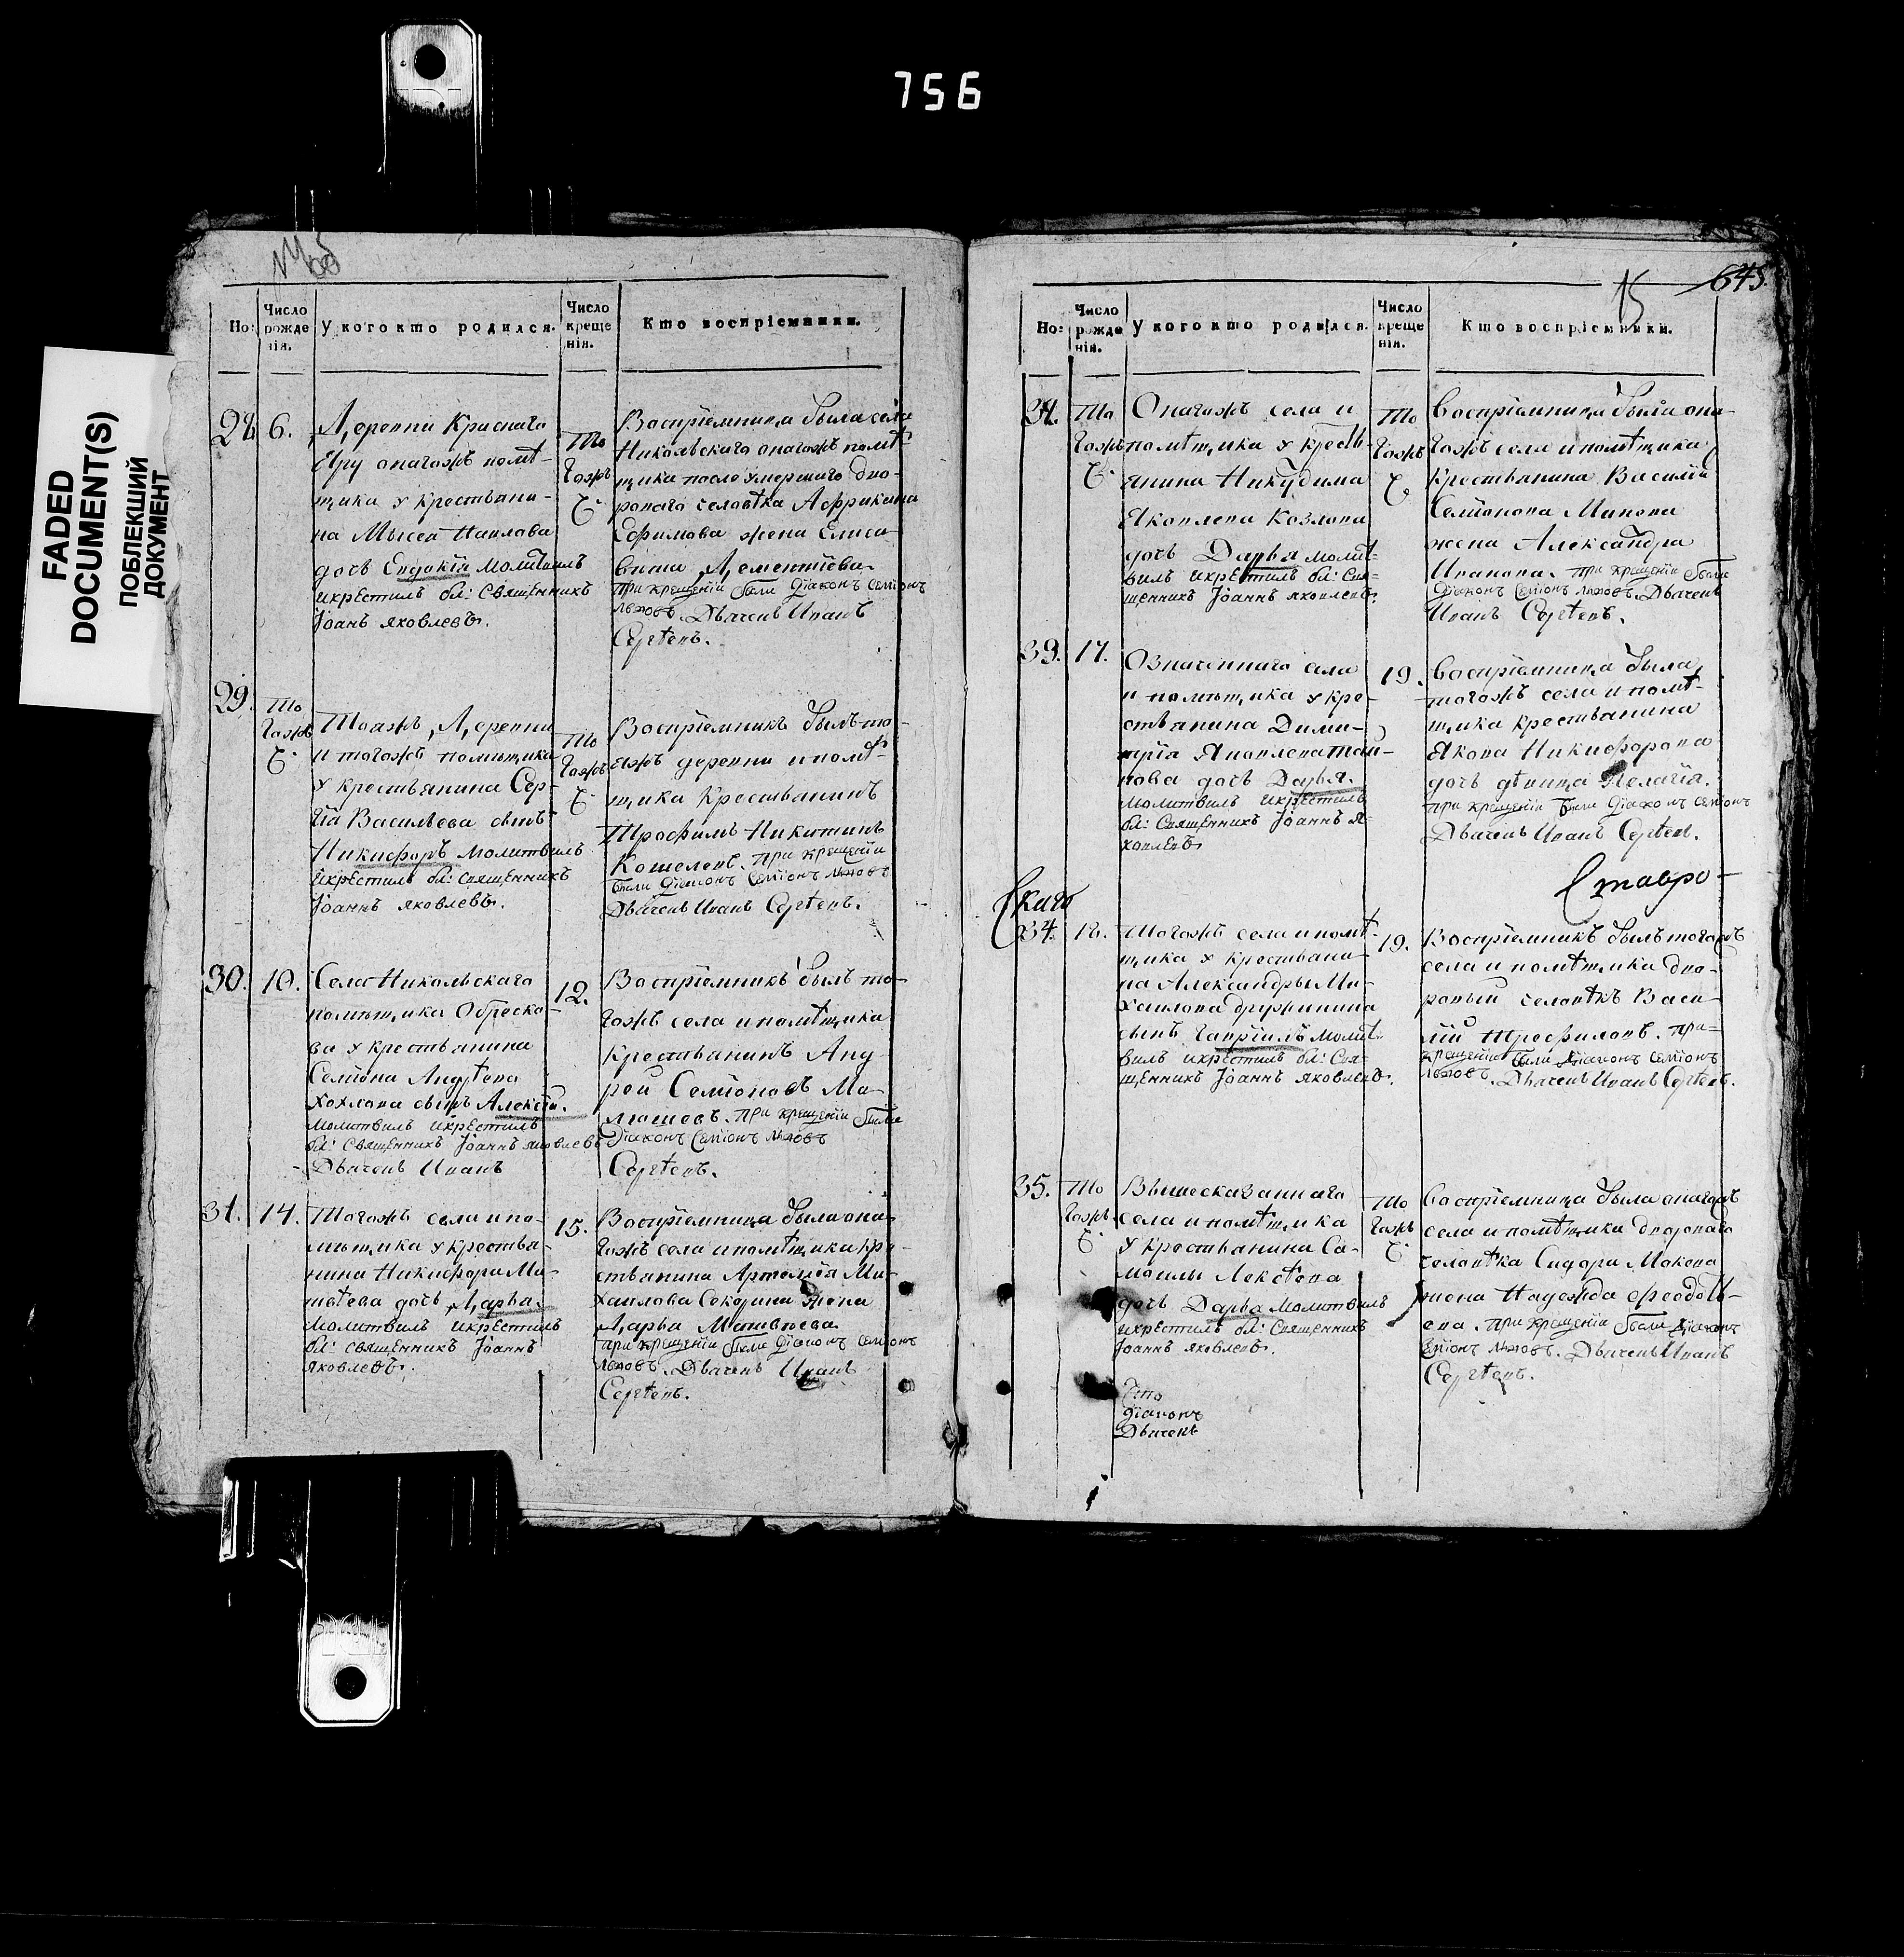 756
FADED
DOCUMENT(S)
ПОБЛЕКШИЙ
ДОКУМЕНТ
Но:
Число рожде нія.
У кого кто родился.
Число креще нія.
Кто воспріемники.
28
6.
Деревни Краснаго
Яру онагожъ помѣ-
щика у крестьяни-
на Мысея Павлова
дочь Евдокія молитвилъ
икрестилъ бл: Священникъ
Іоанъ яковлевъ.
то
гожъ
6.
Воспріемница была села
Никольскаго онагожъ помѣ-
щика после умершаго дво-
роваго человѣка Аффрикана
Ефимова жена Елиса-
вита Дементіева.
при крещеніи были діаконъ семіонъ
львовъ. Дьячекъ Иванъ
Сергѣевъ.
29.
то
гожъ
6.
Тояжъ Деревни
и тогожъ помѣщика
у крестьянина Сер-
гія Васильева сынъ
Никифоръ молитвилъ
икрестилъ бл: священникъ
Іоаннъ яковлевъ.
то
гожъ
6.
Воспріемникъ былъ то-
яжъ деревни и помѣ-
щика Крестьянинъ
Трофимъ Никитинъ
Кошелевъ. при крещеніи
были діаконъ семіонъ львовъ
Дьячекъ Иванъ Сергѣевъ.
30.
10.
Села Никольскаго
помѣщика Обреско-
ва у крестьянина
Семіона Андрѣева
Хохлова сынъ Алексій.
молитвилъ икрестилъ
бл: священникъ Іоаннъ яковлевъ
Дьячекъ Иванъ
12.
Воспріемникъ былъ то-
гожъ села и помѣщика
Крестьянинъ Анд-
рей Семіоновъ Ма-
люшевъ. при крещеніи были
діаконъ Семіонъ львовъ
Сергѣевъ.
31.
14.
Тогожъ села и по-
мѣщика у крестья-
нина Никифора Ма-
твѣева дочь Дарья.
молитвилъ икрестилъ
бл: священникъ Іоаннъ
яковлевъ.
15.
Воспріемница была она-
гожъ села и помѣщика кре-
стьянина Артемія Ми-
хаилова Секорина жена
Дарья Матвѣева.
при крещеніи были діаконъ семіонъ
львовъ. Дьячекъ Иванъ
Сергѣевъ.
15
645
Но:
Число рожде нія.
У кого кто родился.
Число креще нія.
Кто воспріемники.
то
гожъ
6.
Онагожъ села и
помѣщика у кресть-
янина Никудима
Яковлева Козлова
дочь Дарья молит-
вилъ икрестилъ бл: Свя-
щенникъ Іоаннъ яковлевъ.
то
гожъ
6
Воспріемница была она-
гожъ села и помѣщика
Крестьянина Василія
Семіонова Минова
жена Александра
Иванова. при крещеніи были
діаконъ Семіонъ львовъ. Дьячекъ
Иванъ Сергѣевъ.
17.
Означеннаго села
и помѣщика у кре-
стьянина Дими-
трія Яковлева Тай-
нова дочь Дарья.
молитвилъ икрестилъ
бл: Священникъ Іоаннъ я-
ковлевъ
19.
Воспріемница была
тогожъ села и помѣ-
щика крестьянина
Якова Никифорова
дочь дѣвица Пелагія.
при крещеніи были діаконъ семіонъ
Дьячекъ Иванъ Сергѣев.
Ставро-
34.
18.
Тогожъ села и помѣ-
щика у крестьяни-
на Александры Ми-
хаилова дружинина
сынъ Гавріилъ молит-
вилъ икрестилъ бл: Свя-
щенникъ Іоаннъ яковлевъ.
19.
Воспріемникъ былъ тогожъ
села и помѣщика дво-
ровый человѣкъ Васи-
лій Трофимовъ. при-
крещеніи были діаконъ семіонъ
львовъ. Дьячекъ Иванъ Сергѣевъ.
35.
то
гожъ
6.
Вышесказаннаго
села и помѣщика
у крестьянина Са-
моилы Лексѣева
дочь Дарья молитвилъ
икрестилъ бл: Священникъ
Іоаннъ яковлевъ.
то
гожъ
6.
Воспріемница была онагожъ
села и помѣщика дворонаго
человѣка Сидора Мокева
жена Надежда Феодоть-
ева. при крещеніи были діаконъ
Семіонъ львовъ. Дьячекъ Иванъ
Сергѣевъ.
діаконъ
Дьячекъ